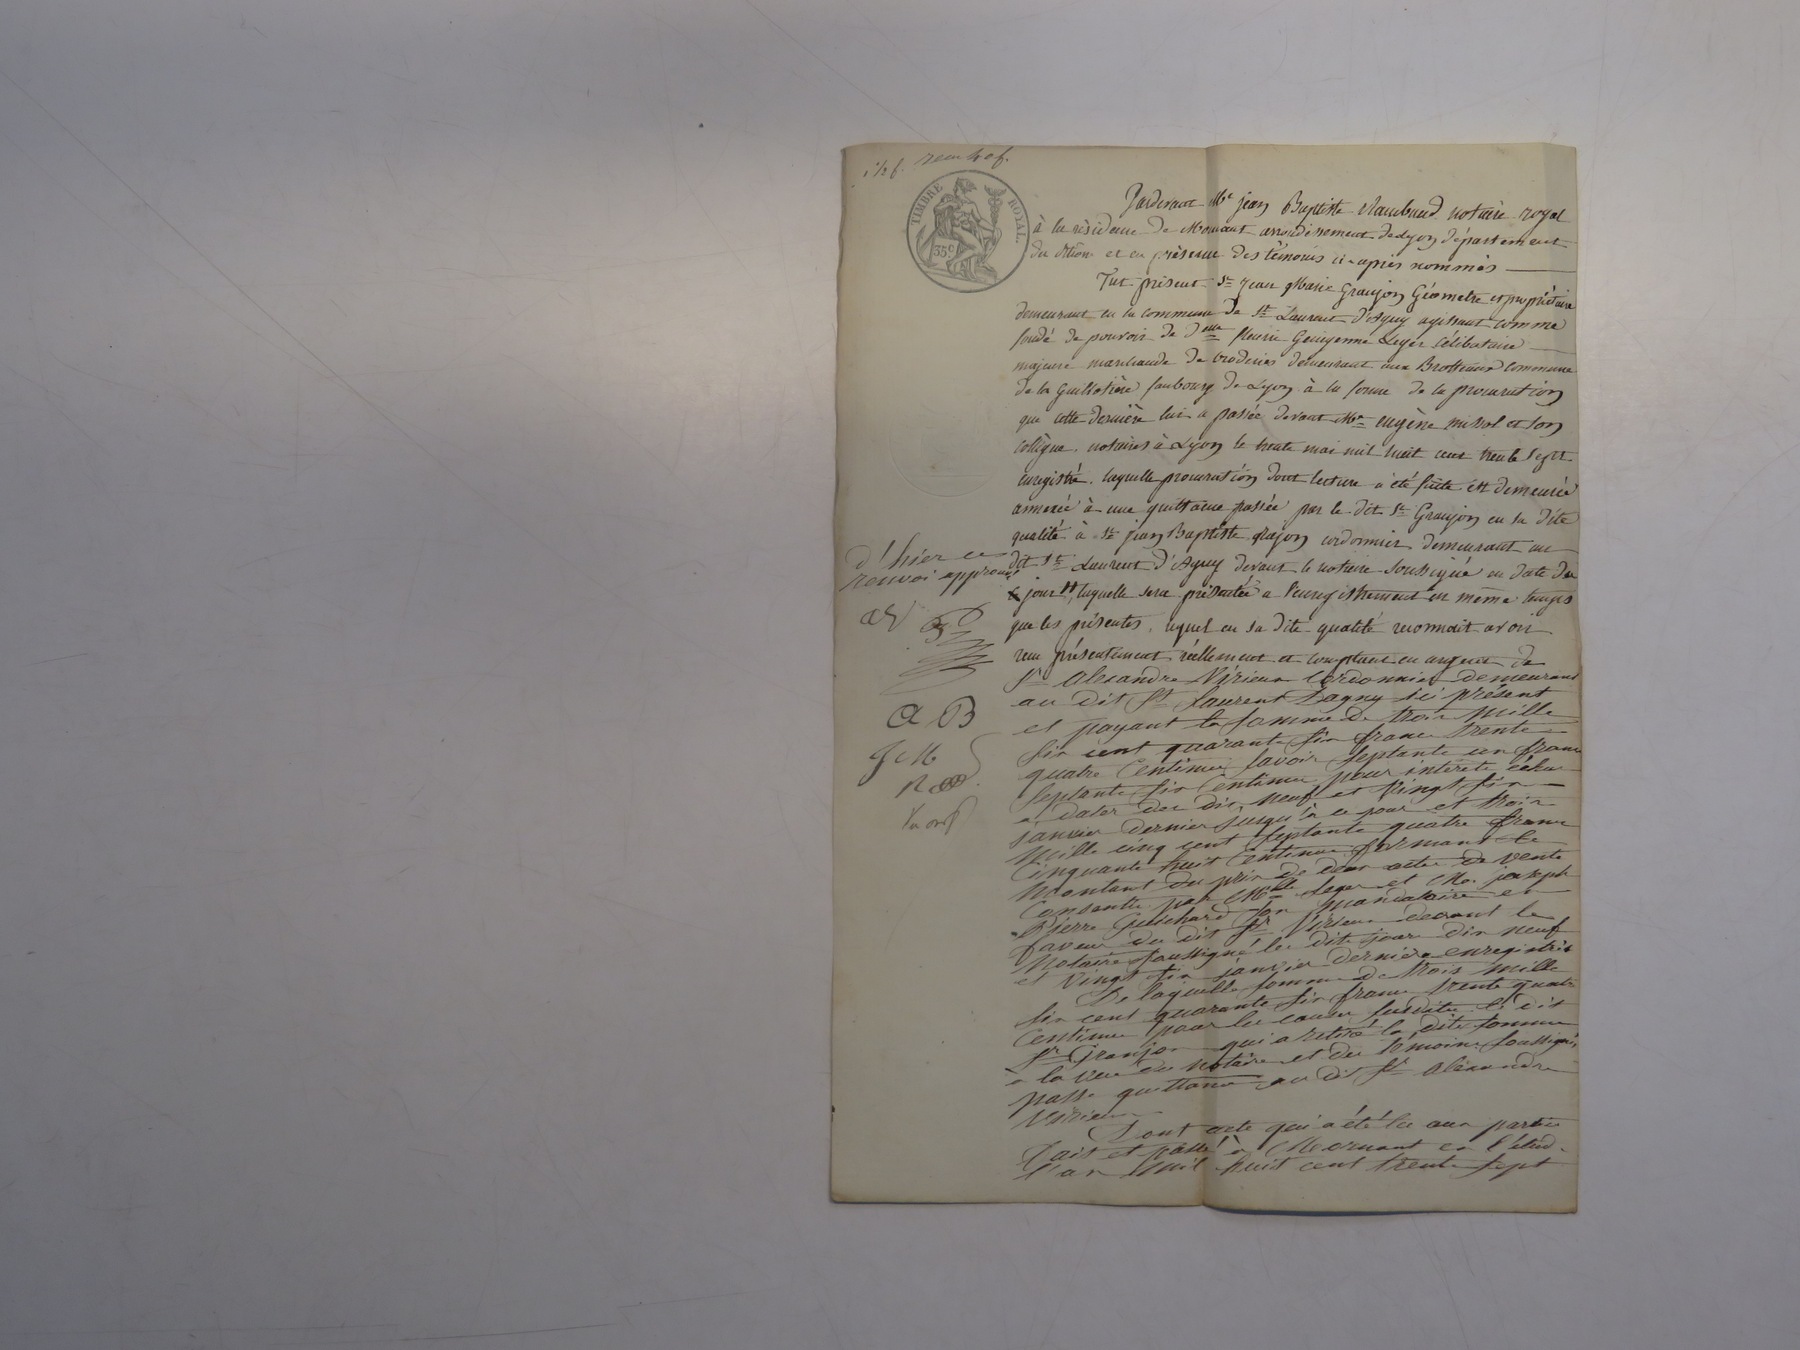 TIMBRE ROYAL.
35c
Pardevant Me jean Baptiste notaire royal
à la résidence de Mornant arrondissement de Lyon département
du Rhône et en présence des témoins ci-après nommés
Fut présent Sr jean Marie Granjon Géometre et propriétaire
demeurant en la commune de St Laurent d'Agny agissant comme
fondé de pouvoir de Delle Leger célibataire
majeure marchande de broderies demeurant aux Brotteaux commune
de la Guillotière faubourg de Lyon à la forme de la procuration
que cette dernière lui a passée devant Me eugène et son
collègue, notaires à Lyon le trente mai mil huit cent trente sept
enregistré, laquelle procuration dont lecture a été faite est demeurée
annexée à une quittance passée par le dit Sr Granjon en sa dite
qualité à Sr jean Baptiste cordonnier demeurant au
dit St Laurent d'Agny devant le notaire soussigné en date du
jour laquelle sera présentée à l'enregistrement en même temps
que les présentes, lequel en sa dite qualité reconnait avoir
reçu présentement réellement et comptant en argent de
Sr Alexandre Virieux Cordonnier demeurant
au dit St Laurent Dagny ici présent
et payant la somme de trois mille
six cent quarante six francs trente
quatre Centimes savoir septante un francs
septante six centimes pour intérets échus
à dater des dix neuf et vingt six
janvier dernier jusqu'à ce jour et trois
mille cinq cent septante quatre francs
Cinquante huit Centimes formant le
montant du prix de deux actes de vente
Consentis par Mlle Leger et Mr joseph
Pierre Guichard son mandataire en
faveur du dit Sr Virieux devant le
Notaire soussigné les dits jours dix neuf
et vingt six janvier dernier enregistrés
De laquelle somme de trois mille
six cent quarante six francs trente quatre
Centimes pour les causes susdites le dit
Sr Granjon qui a retiré la dite somme
à la vue du notaire et des témoins soussignés
passe quittance au dit Sr Alexandre
Virieux
Dont acte qui a été lu aux parties
Fait et passé à Mornant en l'étude
l'an Mil huit cent trente sept
d'hier ce
renvoi approuvé
A B
J M